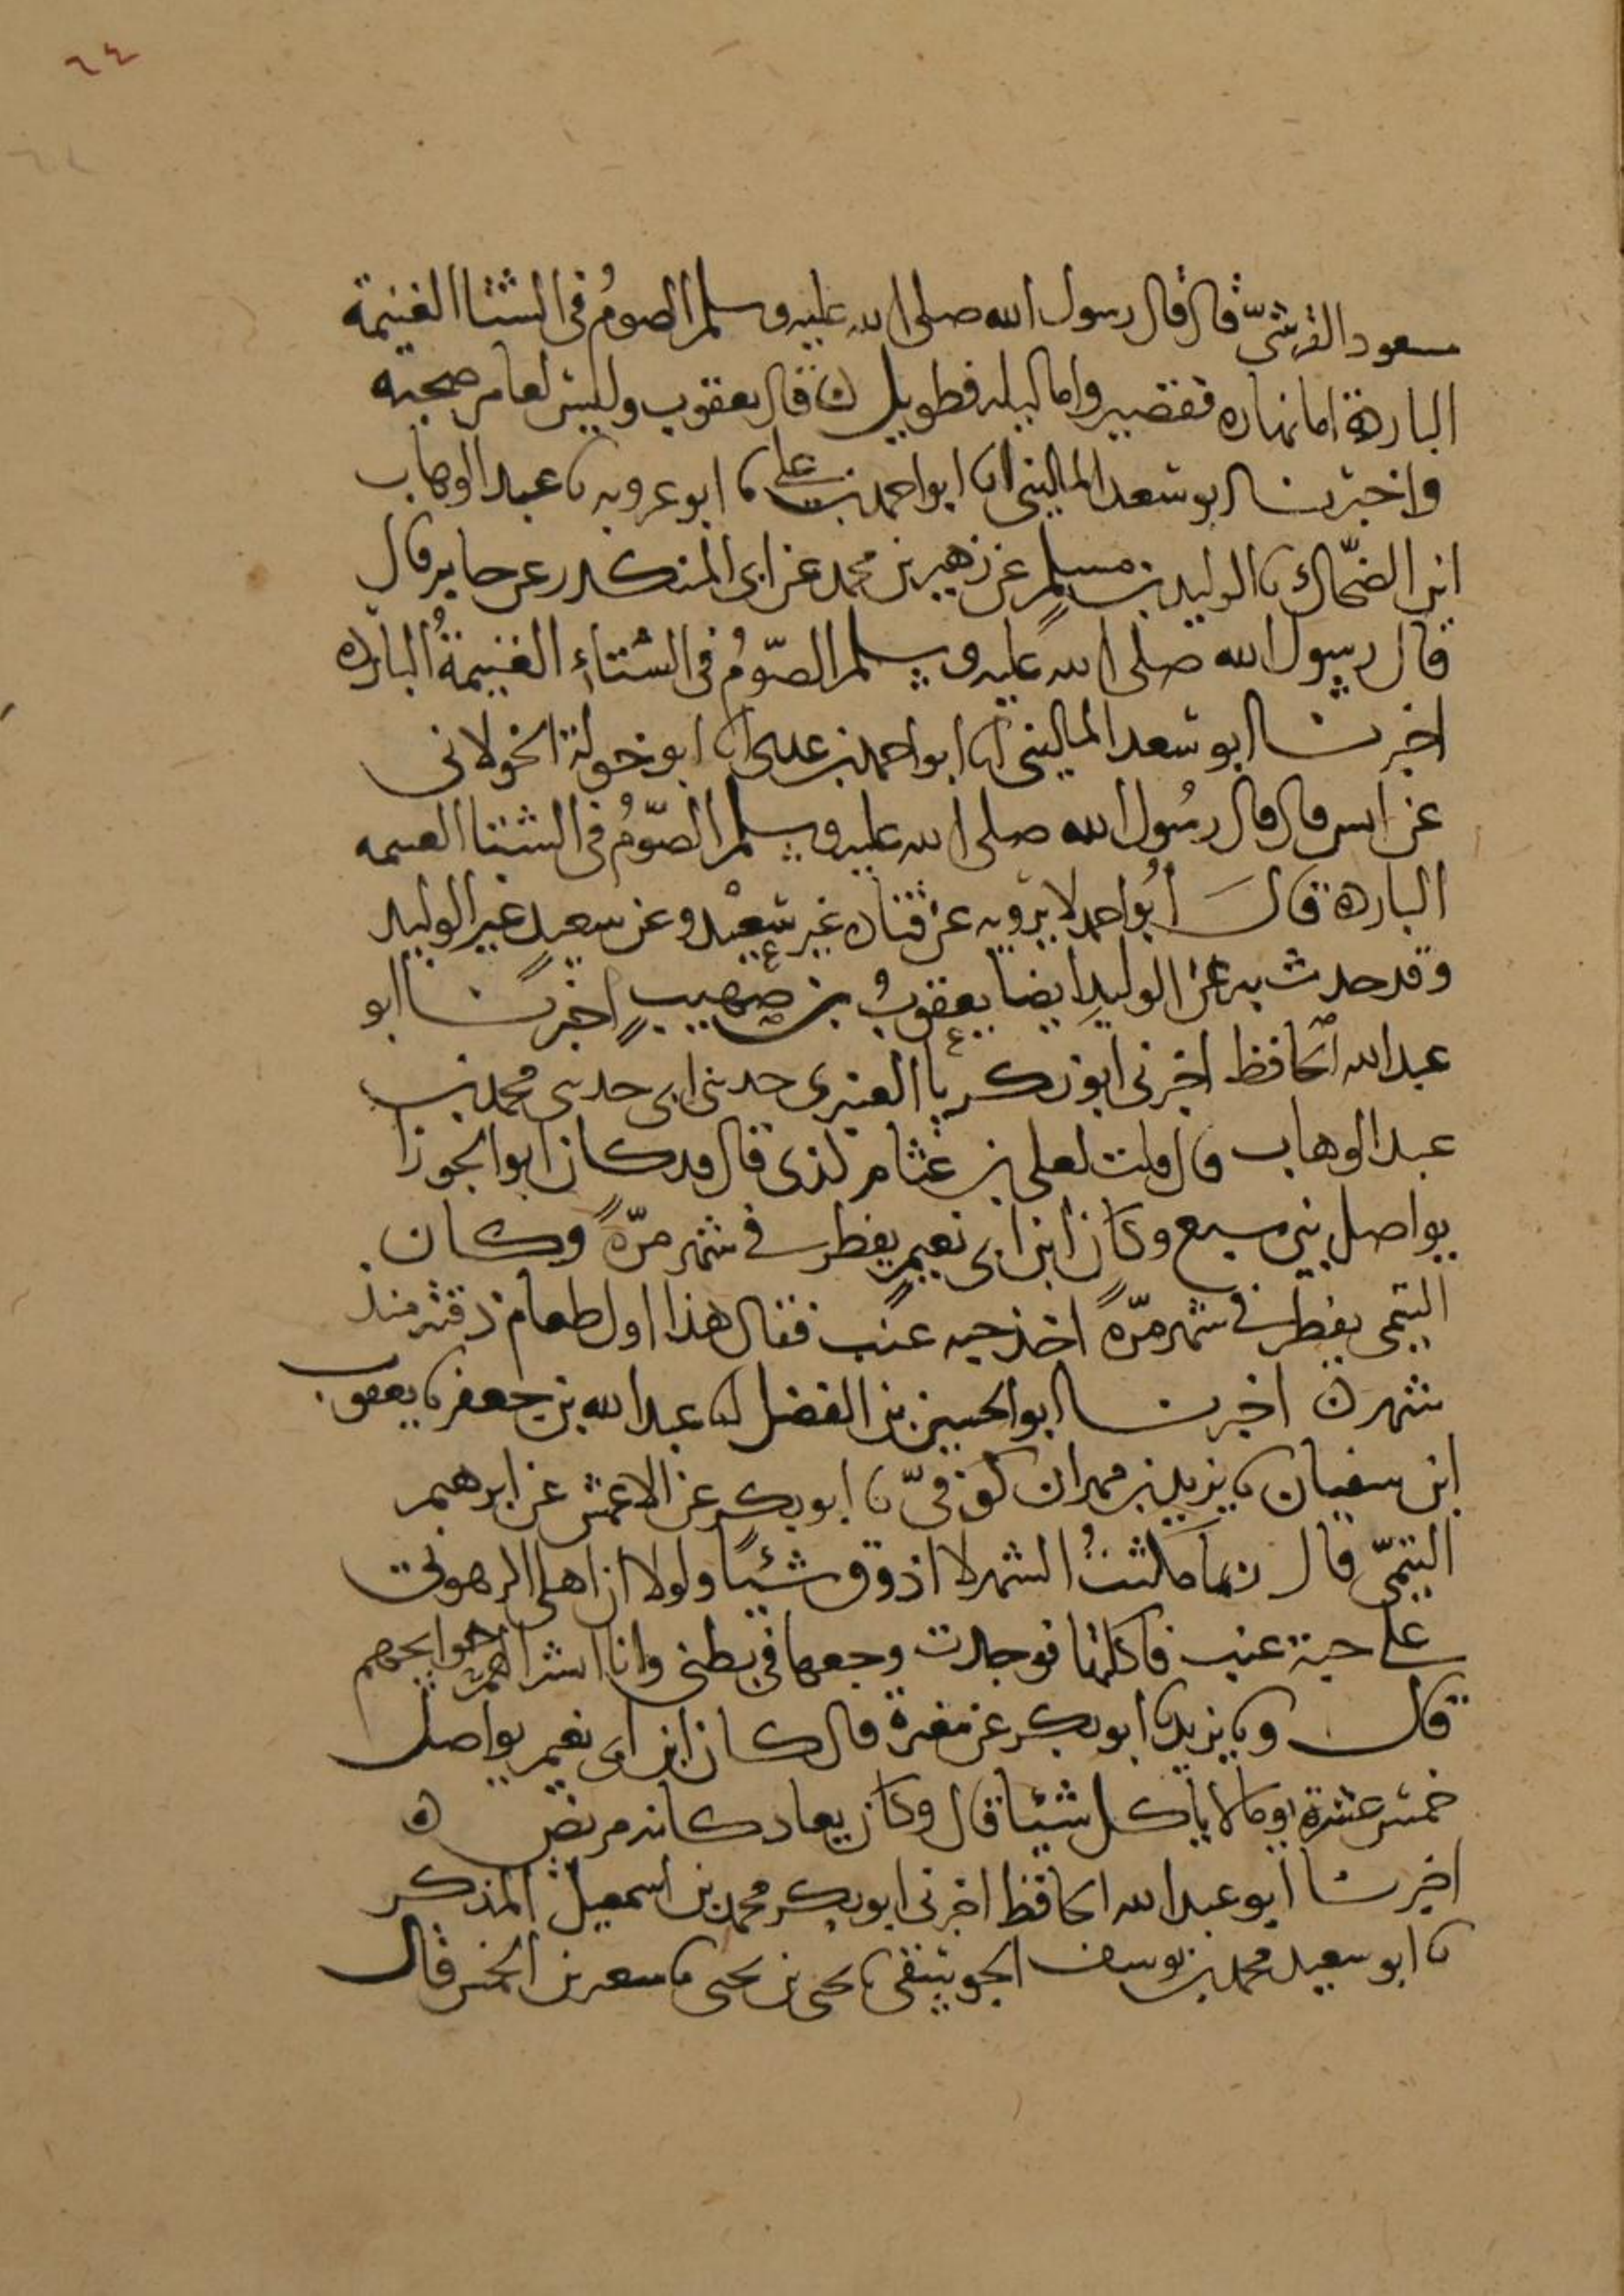 ٦٤
مسعود القرشيّ قال قال رسول الله صلى الله عليه وسلم الصومُ فى الشتا الغنيمة
الباردة اما نهاره فقصير واما ليله فطويل ن قال يعقوب وليس لعامر صحبة
واخبرنا ابو سعد المالينى انا ابو احمد بن على نا ابو عروبه نا عبد الوهاب
ابن الضحّاك نا الوليد بن مسلمٍ عن زهير بن محمد عن ابى المنكدر عن جابر قال
قال رسول الله صلى الله عليه وسلم الصّومُ فى الشتاء الغنيمةُ الباردة
اخبرنا ابو سعد المالينى انا ابو احمد بن عدى نا ابو خولة الخولانى
عن انس قال قال رسُول الله صلى الله عليه وسلم الصّومُ فى الشتا الغنيمه
الباردة قال أبُو احمد لا يرويه عن قتاده غير سعيْد وعن سعيدٍ غير الوليد
وقد حدث به عن الوليدِ ايضا يعقوبُ بن صهيبٍ اخبرنا ابو
عبد الله الحافظ اخبرنى ابو زكريا العنبرى حدثنى ابى حدثنى محمد بن
عبد الوهاب قال قلت لعلى بن عثام لذى قال قد كان ابو الجوزا
يواصل بين سبع وكان ابن ابى نعيمٍ يفطر فى شهر مرّةً وكان
التيمى يفطر فى شهر مرّةً اخذ حبه عنب فقال هذا اول طعام ذقته منذ
شهر ن اخبرنا ابو الحسين بن الفضل انا عبد الله بن جعفر نا يعقوب
ابن سفيان نا يزيد بن مهران كوفىّ نا ابو بكر عن الاعمش عن ابرهيم
التيمىّ قال ربما مكثتُ الشهر لا اذوق شيئًا ولولا ان اهلى اكرهونى
على حبة عنب فاكلتها فوجدت وجعها فى بطنى وانا اشترى لهم حوايجهم
قال ونا يزيد نا ابو بكر عن مغيرة قال كان ابن ابى نعيم يواصل
خمس عشرة يوما لا ياكل شيئا قال وكان يعاد كانه مريض ه
اخبرنا ابو عبد الله الحافظ اخبرنى ابو بكر محمد بن اسمعيل المذكر
نا ابو سعيد محمد بن يوسف نا يحيى بن يحيى نا سعير بن الخمس قال